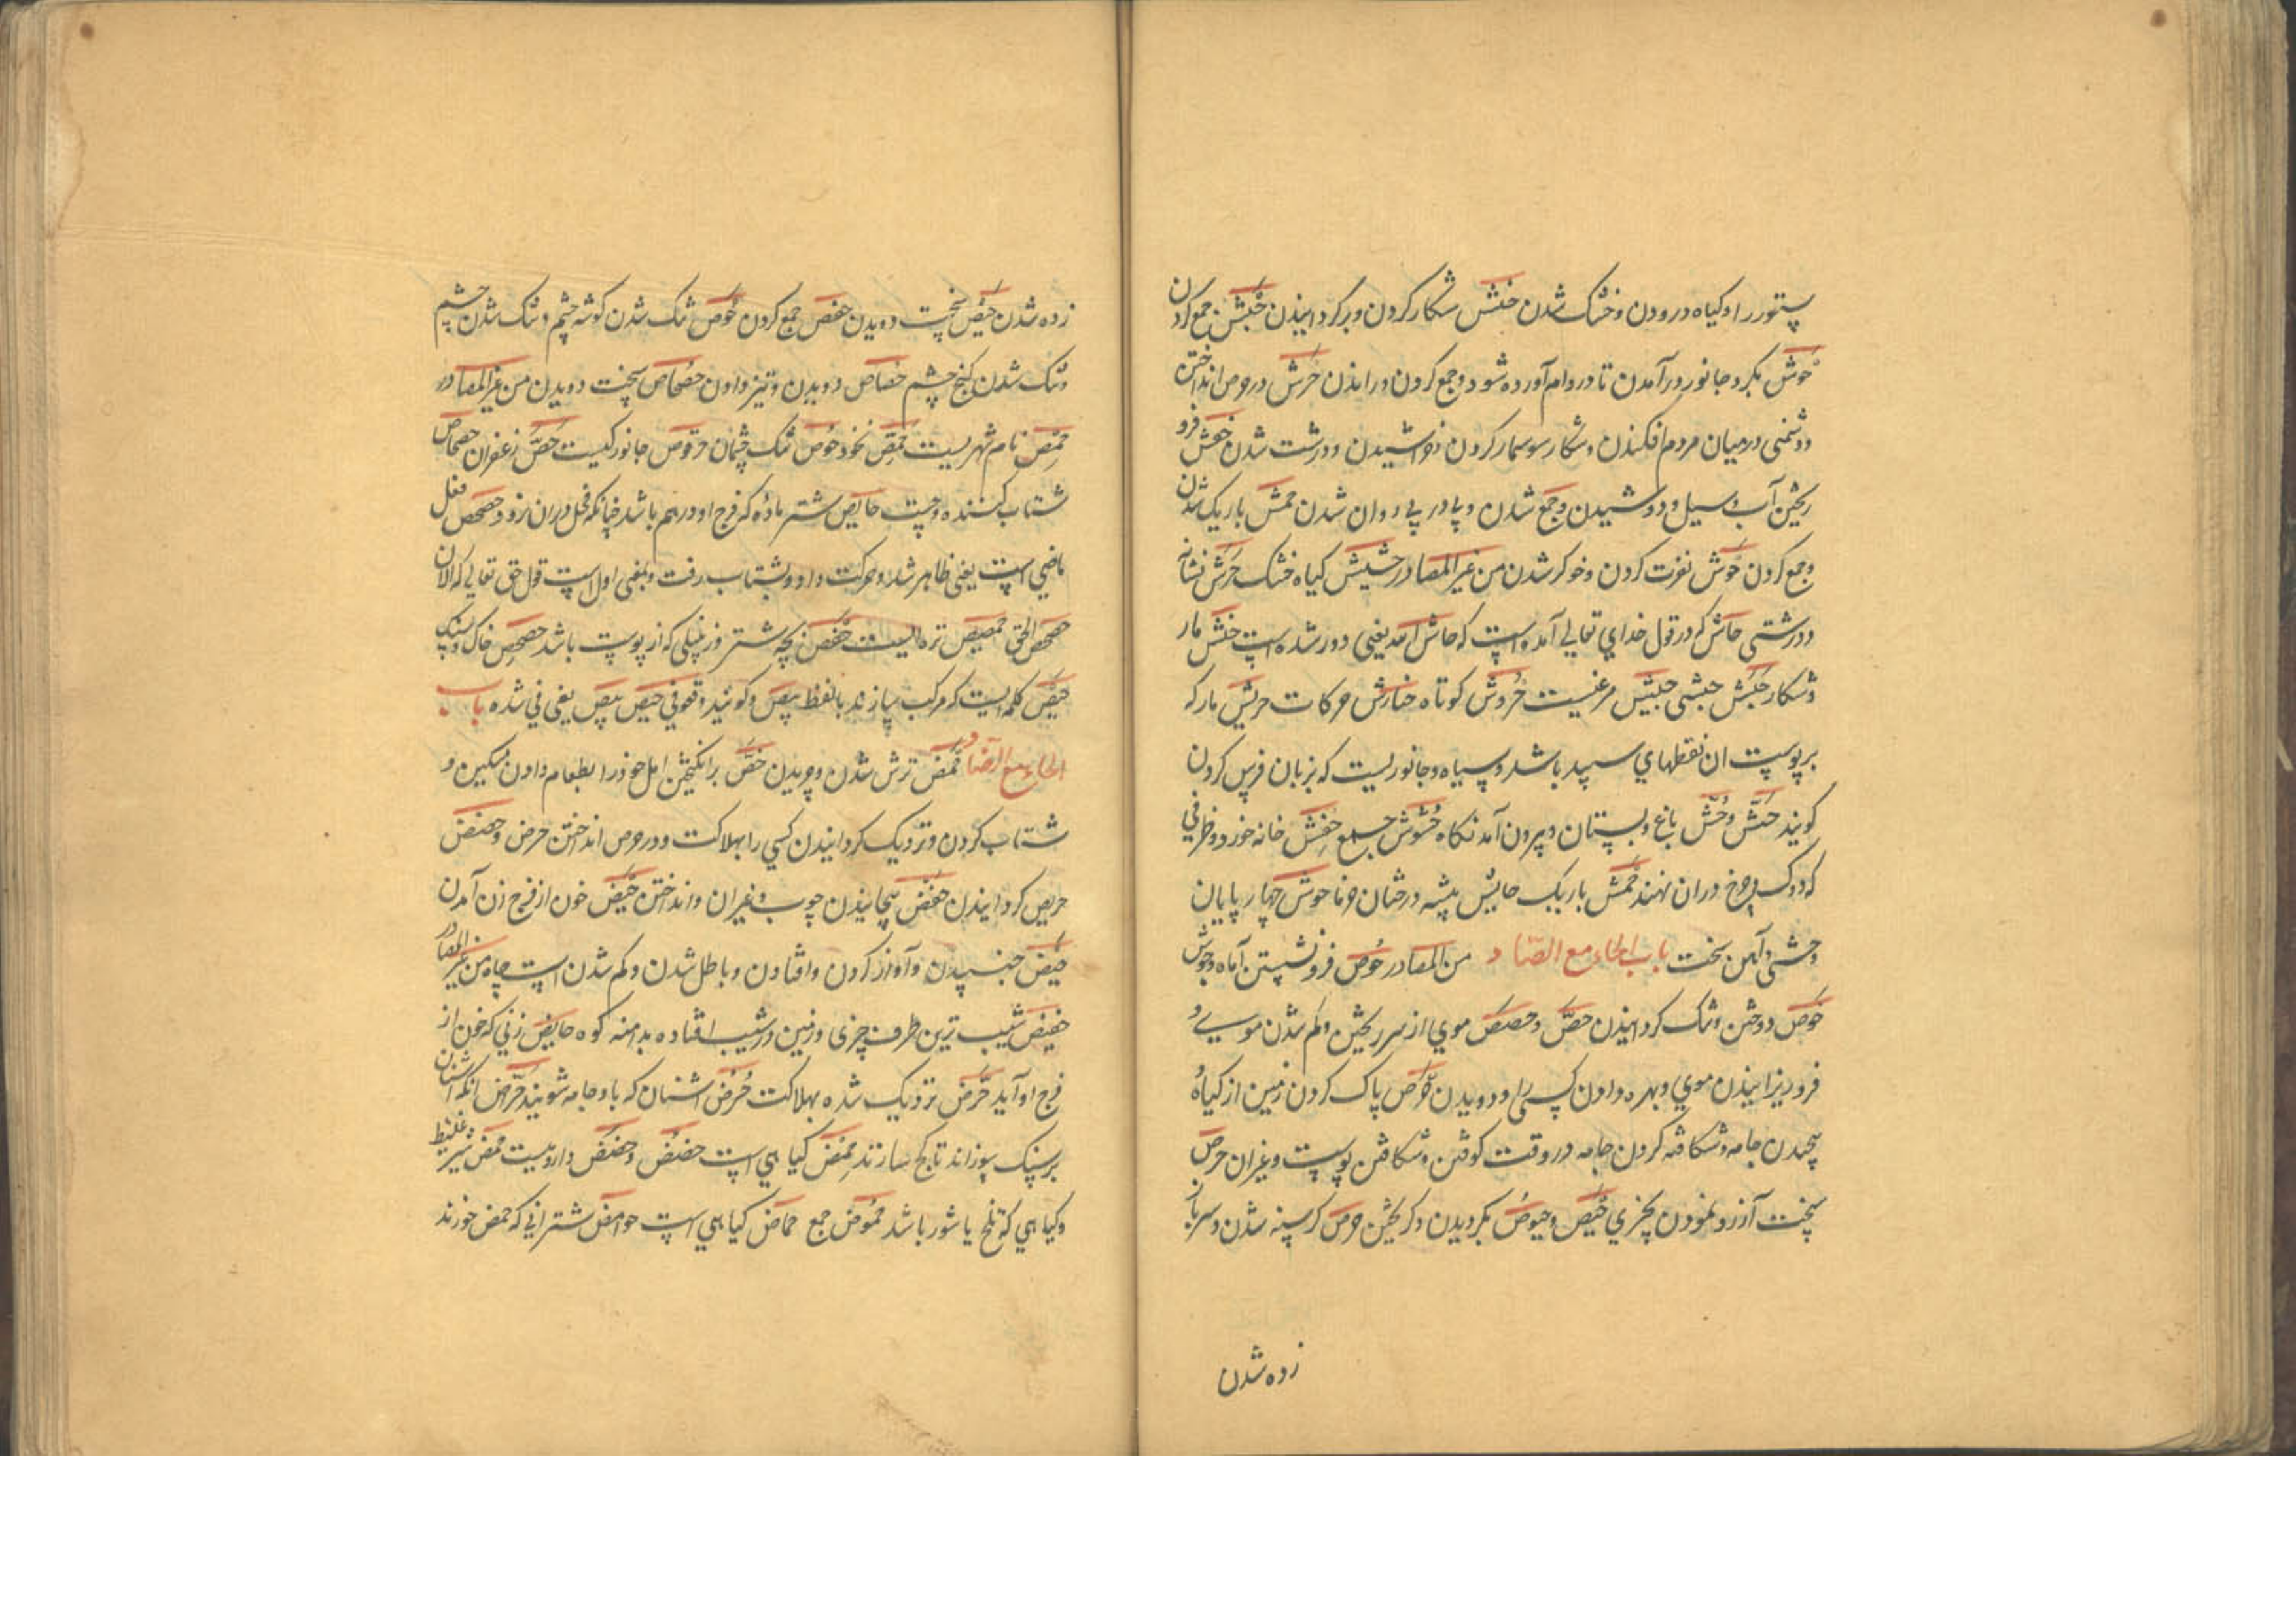 ستور را و کیاه درودن و خشک شدن حنش شکار کردن و برکردانیذن حبش جمع کردن
حوش بکرد جانور درآمدن تا در دام آورده شود و جمع کردن و راندن حرش در حرص انداختن
و دشمنی درمیان مردم افکندن و شکار سوسمار کردن و خراشیدن و درشت شدن حفش فرو
ریختن آب و سیل و دوشیدن و جمع شدن و پیا در پی روان شدن حمش باریک شدن
و جمع کردن حوش نفرت کردن و خوکر شدن من غیر المصادر حشیش کیاه خشک حرش نشانه
و درشتی حاش که در قول خدای تعالی آمده است که حاش لله یعنی دور شده است حنش مار
و شکار حبش حبشی حبیش مرغیست حروش کوتاه حتارش حرکات حریش مار که
بر پوست ان نقطهای سپید باشد و سیاه و جانوریست که بزبان فرس کردن
کویند حش و حش باغ و بستان و بیرون آمد نکاه حشوش جمع حفش خانه خورد و ظرفی
که دوک و چرخ دران نهند حمش باریک حایش بیشه درختان خرما حوش چهار پایان
وحشی و آهن سخت باب الحاء مع الصاد من المصادر حوص فرو نشستن آماه و جوش
حوص دوختن و تنک کردانیذن حص و حصص موی از سر ریختن و کم شدن موی و
فرو ریزانیذن موی و بهره دادن کسی را و دویدن حرص پاک کردن زمین از کیاه و
پیچیدن جامه و شکافته کردن جامه در وقت کوفتن و شکافتن پوست و غیر ان حرص
سخت آرزو نمودن بچیزی حیص و حیوص بکردیدن و کریختن حرص کرسنه شدن و سرباز
زده شدن
زده شدن حیص سخت دویدن حفص جمع کردن حوص تنک شدن کوشه چشم و تنک شدن چشم
و تنک شدن کنج چشم حصاص دویدن و تیز دادن حصحاص سخت دویدن من غیر المصادر
حمص نام شهریست حمص نخود حوص تنک چشمان حرقوص جانورکیست حص زعفران حصحاص
شتاب کننده و چست حایص شتر ماده که فرج او درهم باشد چنانکه فحل دران نرود حصحص فعل
ماضی است یعنی ظاهر شد و حرکت داد و بشتاب رفت و بمعنی اول است قول حق تعالی که الان
حصحص الحق حمصیص تره ایست حفص بچه شتر و زنبیلی که از پوست باشد حصحص خاک و سنک
حیص کلمه ایست که مرکب سازند با لفظ بیص و کویند وقعوا فی حیص بیص یعنی فی شده باب
الحاء مع الضاد حمض ترش شدن و چریدن حض برانکیختن اهل خود را بطعام دادن مسکین و
شتاب کردن و نزدیک کردانیدن کسی را بهلاکت و در حرص انداختن حرض و حضض
حریص کردانیذن حفض پیچانیذن چوب و غیر ان و انداختن حیض خون از فرج زن آمدن
حبض جنبیدن و آواز کردن و افتادن و باطل شدن و کم شدن است چاه من غیر المصادر
حضیض شیب ترین طرف چیزی و زمین در شیب افتاده بدامنه کوه حایض زنی که خون از
فرج او آید حرض نزدیک شده بهلاکت حرض اشنان که باو جامه شویند حراض انکه اشنان
بر سنک سوزاند تا کج سازند حمض کیاهی است حضض و حضض داروییست محض شیر غلیظ
و کیاهی که تلخ یا شور باشد حموض جمع حماض کیاهی است حوامض شترانی که حمض خورند